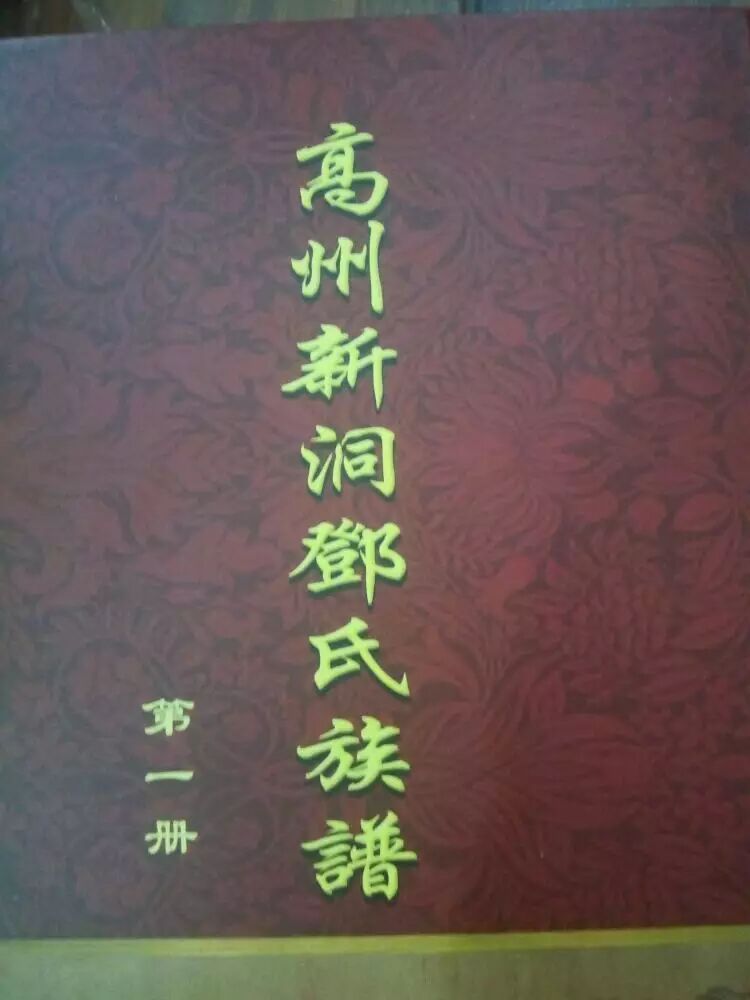 高州新洞鄧氏族譜
第一册